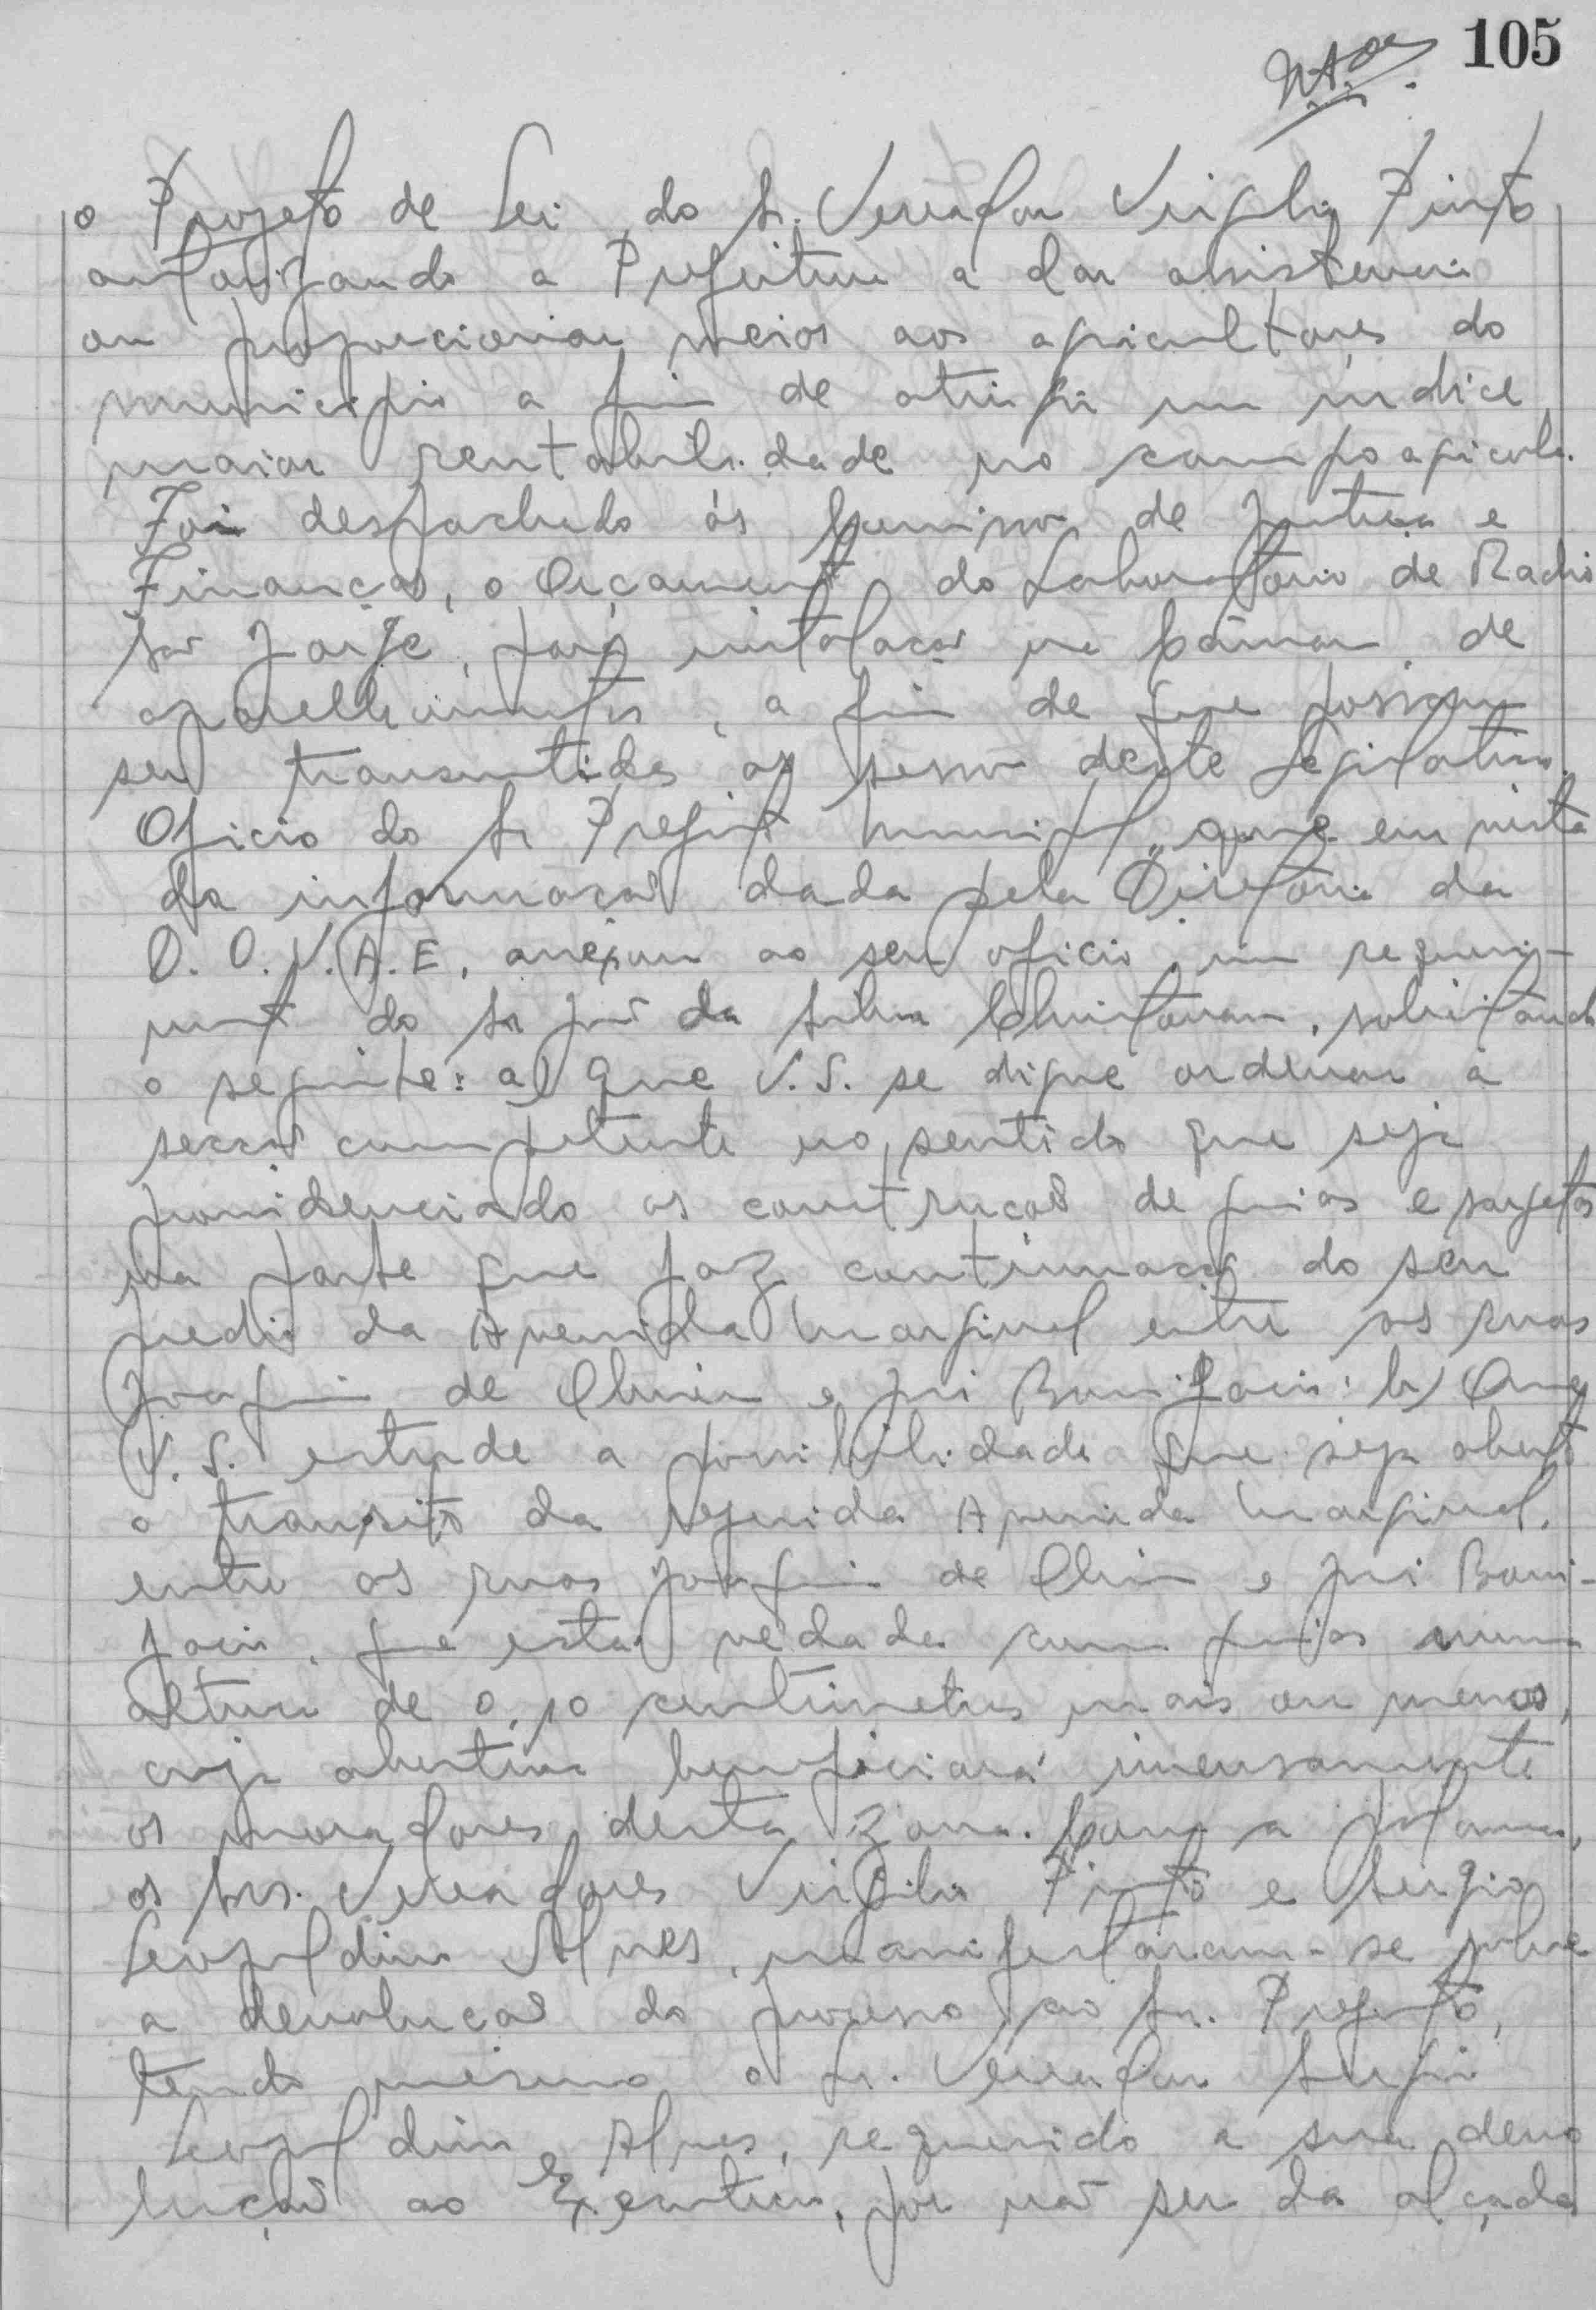 105
o Projeto de Lei do Sr. Vereador Virgilio Pinto
autorizando a Prefeitura a dar assistencia
ou proporcionar meios aos agricultores do
municipio a fim de atingir um indice
maior rentabilidade no campo agricola.
Foi despachado ás Comissoes de Justiça e
Finanças, o Orçamento do Laboratorio de Radio
São Jorge, para instalacao na Câmara de
aparelhamentos, a fim de que possam
ser transmitidas as sessoes deste Legislativo.
Oficio do Sr Prefeito Municipal, que em vista
da informacao dada pela Diretoria da
D. O. V. A. E. anexou ao seu oficio, um requeri-
mento do Sr José da Silva, solicitando
o seguinte: a) Que V. S. se digne ordenar a
seccao competente no sentido que seja
providenciado as construcoes de guias e sargetas
na parte que faz continuacao do seu
predio da Avenida Marginal entre as ruas
Joaquim de Oliveira e José Bonifacio: b) Que
V. S. estude a possibilidade que seja aberto
o transito da referida Avenida Marginal,
entre as ruas Joaquim de Oliveira e José Boni-
facio, que está vedada com guias numa
altura de centimetros mais ou menos,
cuja abertura beneficiará imensamente
os moradores desta zona. Com a palavra,
os Srs. Vereadores Virgilio Pinto e Sergio
Leopoldino Alves, manifestaram-se sobre
a devolucao do processo ao Sr. Prefeito,
tendo mesmo o Sr. Vereador Sergio
Leopoldino Alves, requerido a sua devo
lução ao Executivo, por não ser da alçada